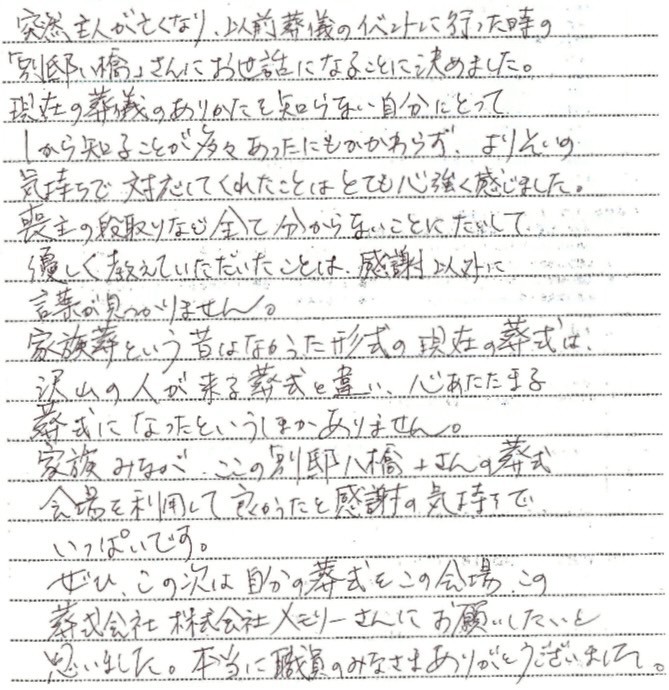 突然主人が亡くなり、以前葬儀のイベントに行った時の
「別邸八橋」さんにお世話になることに決めました。
現在の葬儀のありかたを知らない自分にとって
1から知ることが多々あったにもかかわらず、よりそいの
気持ちで対応してくれたことはとても心強く感じました。
喪主の段取りなど全て分からないことにたいして
優しく教えていただいたことは、感謝以外に
言葉が見つかりません。
家族葬という昔はなかった形式の現在の葬式は、
沢山の人が来る葬式と違い、心あたたまる
葬式になったというしかありません。
家族みなが、ここの別邸八橋さんの葬式
会場を利用して良かったと感謝の気持ちで
いっぱいです。
ぜひ、この次は自分の葬式をこの会場、この
葬式会社 株式会社メモリーさんにお願いしたいと
思いました。本当に職員のみなさまありがとうございました。